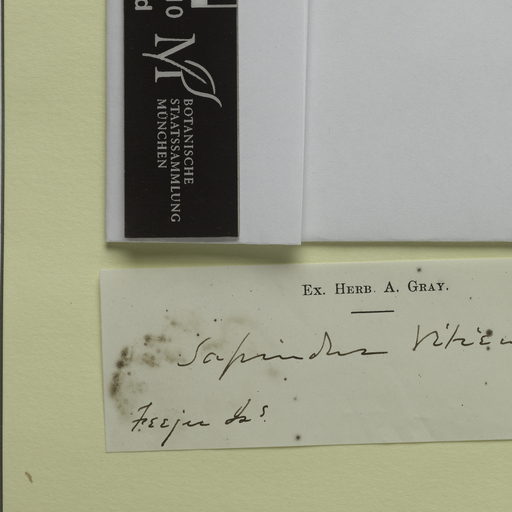 10
BOTANISCHE
STAATSSAMMLUNG
MÜNCHEN
Ex. Herb. A. Gray.
Sapindus
Feejee Is.